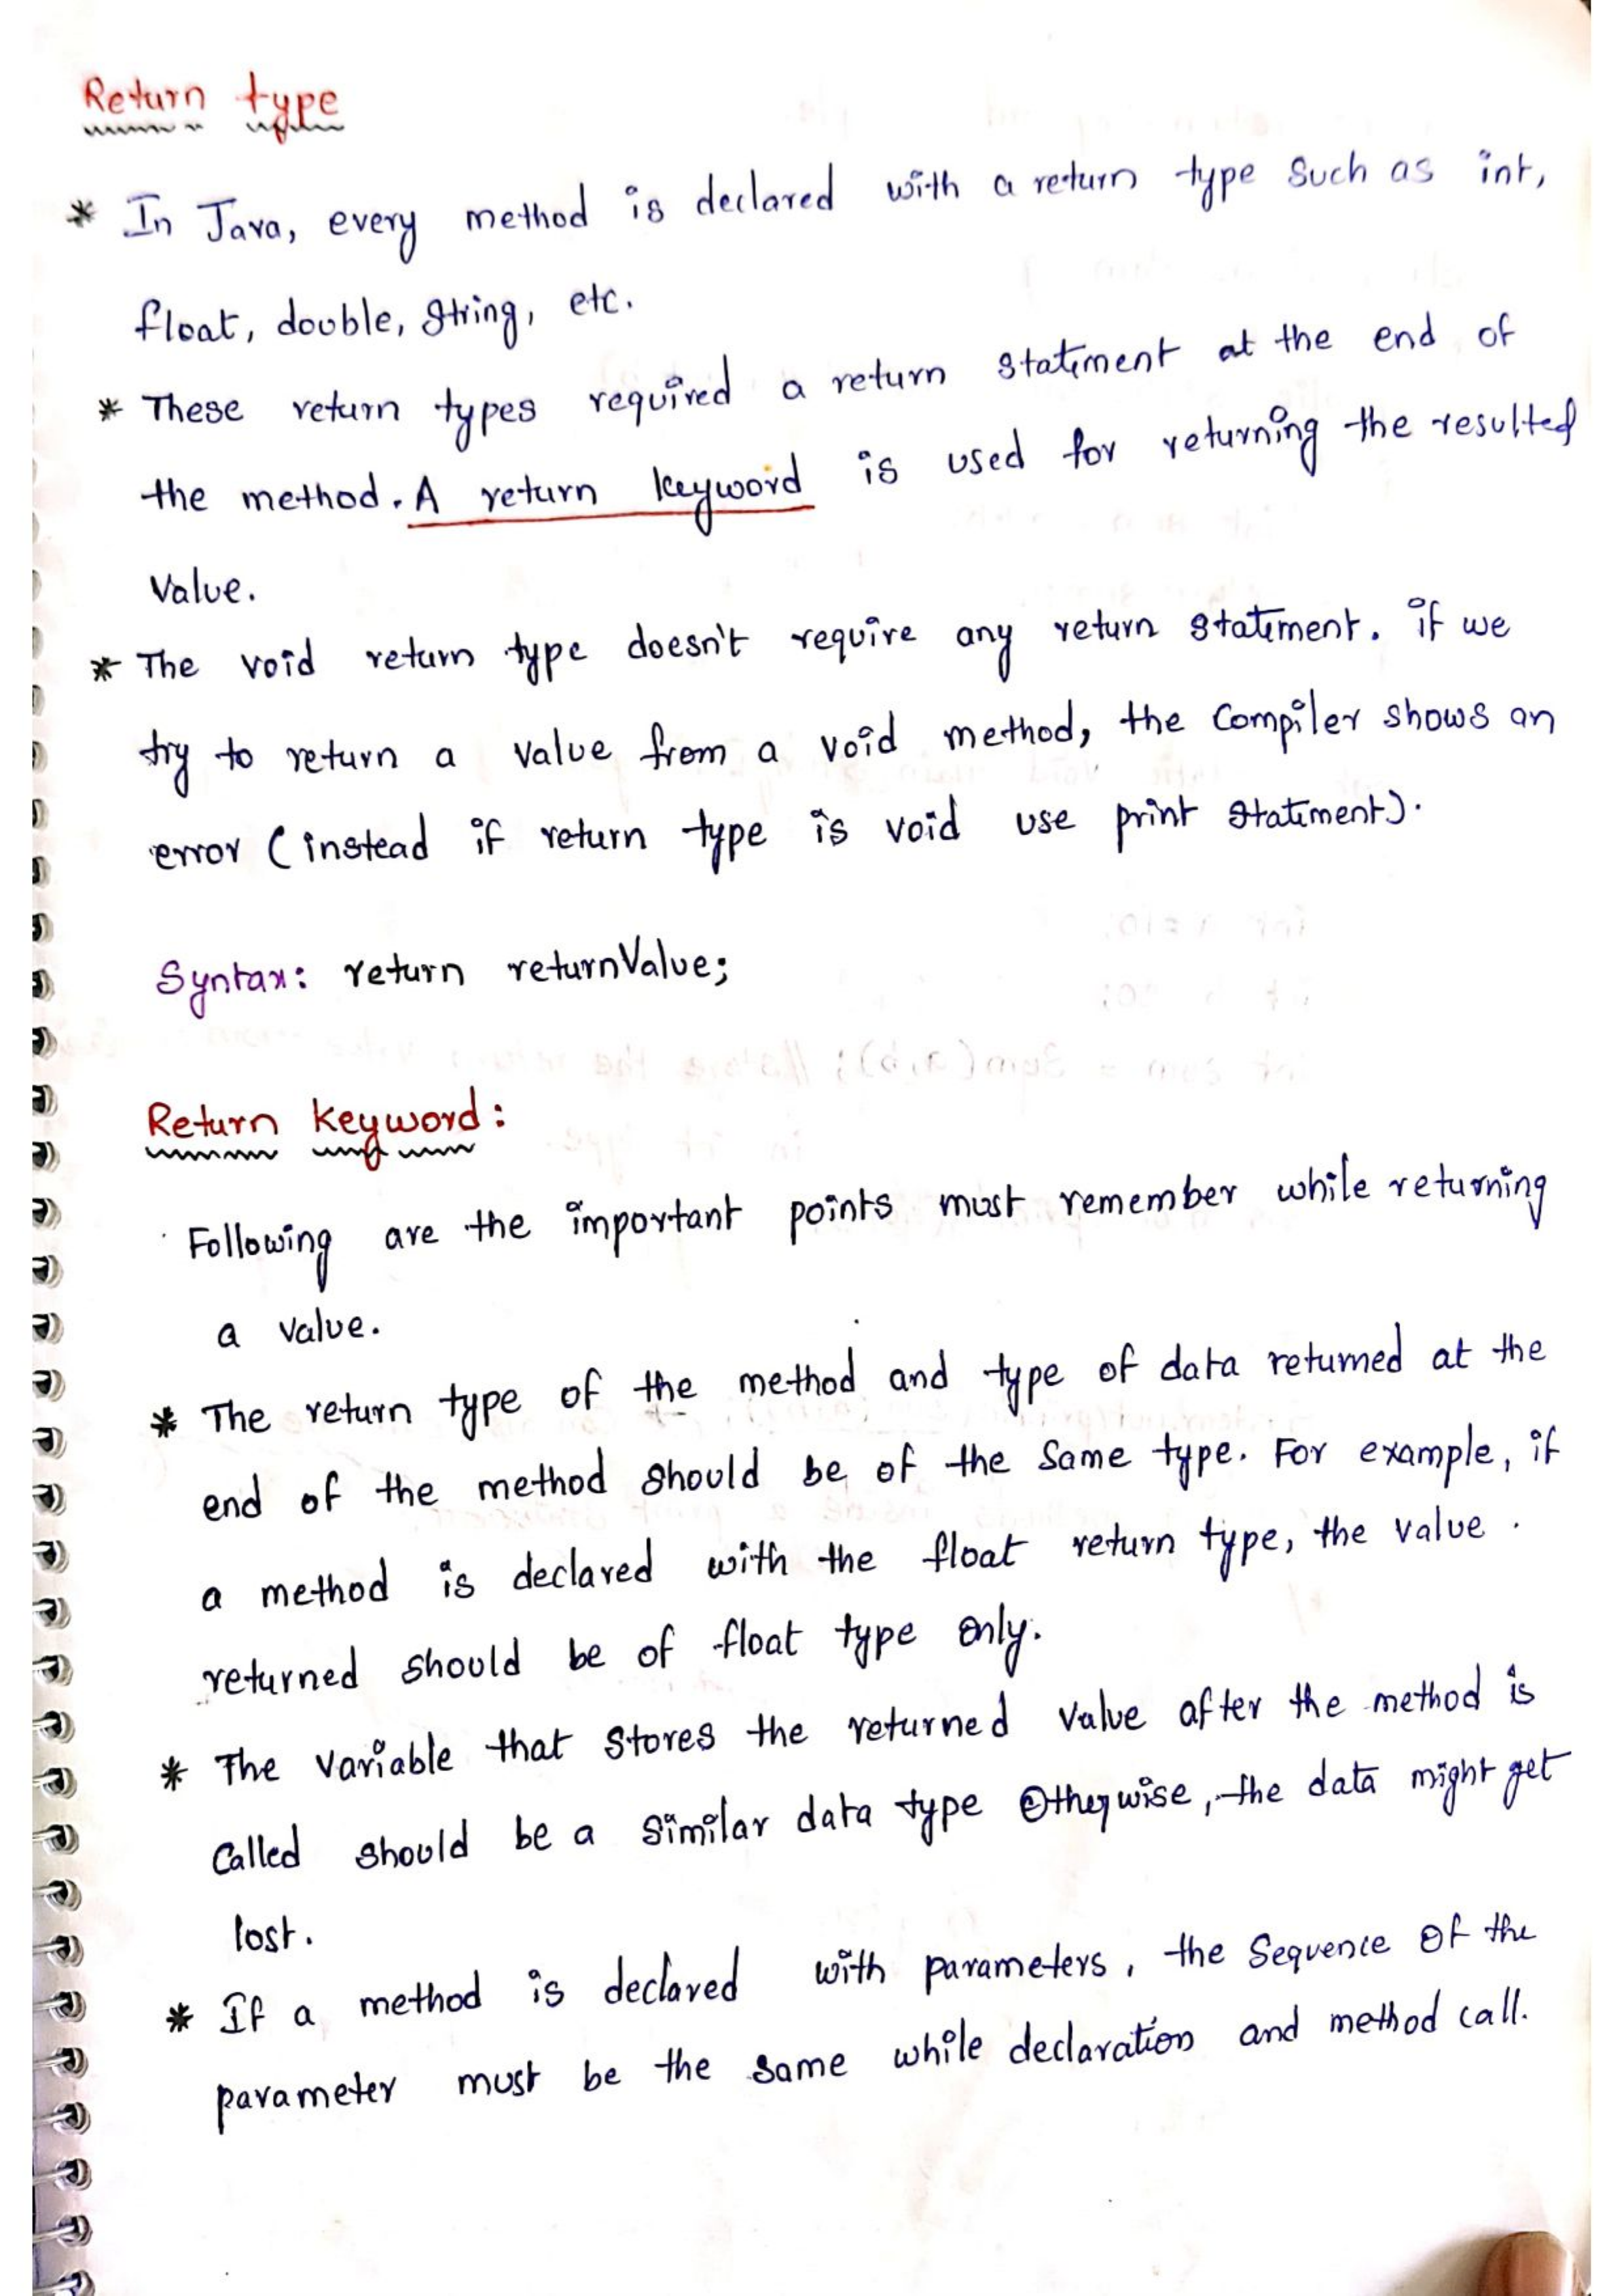 Return type
* In Java, every method is declared with a return type such as int,
float, double, String, etc.
* These return types required a return statement at the end of
the method. A return keyword is used for returning the resulted
Value.
* The void return type doesn't require any return statement. if we
try to return a value from a void method, the Compiler shows an
error (instead if return type is void use print statement).
Syntax: return returnValue;
Return keyword:
Following are the important points must remember while returning
a value.
* The return type of the method and type of data returned at the
end of the method should be of the same type. For example, if
a method is declared with the float return type, the value
returned should be of float type only.
* The variable that stores the returned value after the method is
Called should be a similar data type Otherwise, the data might get
lost.
* If a method is declared with parameters, the Sequence of the
parameter must be the same while declaration and method call.